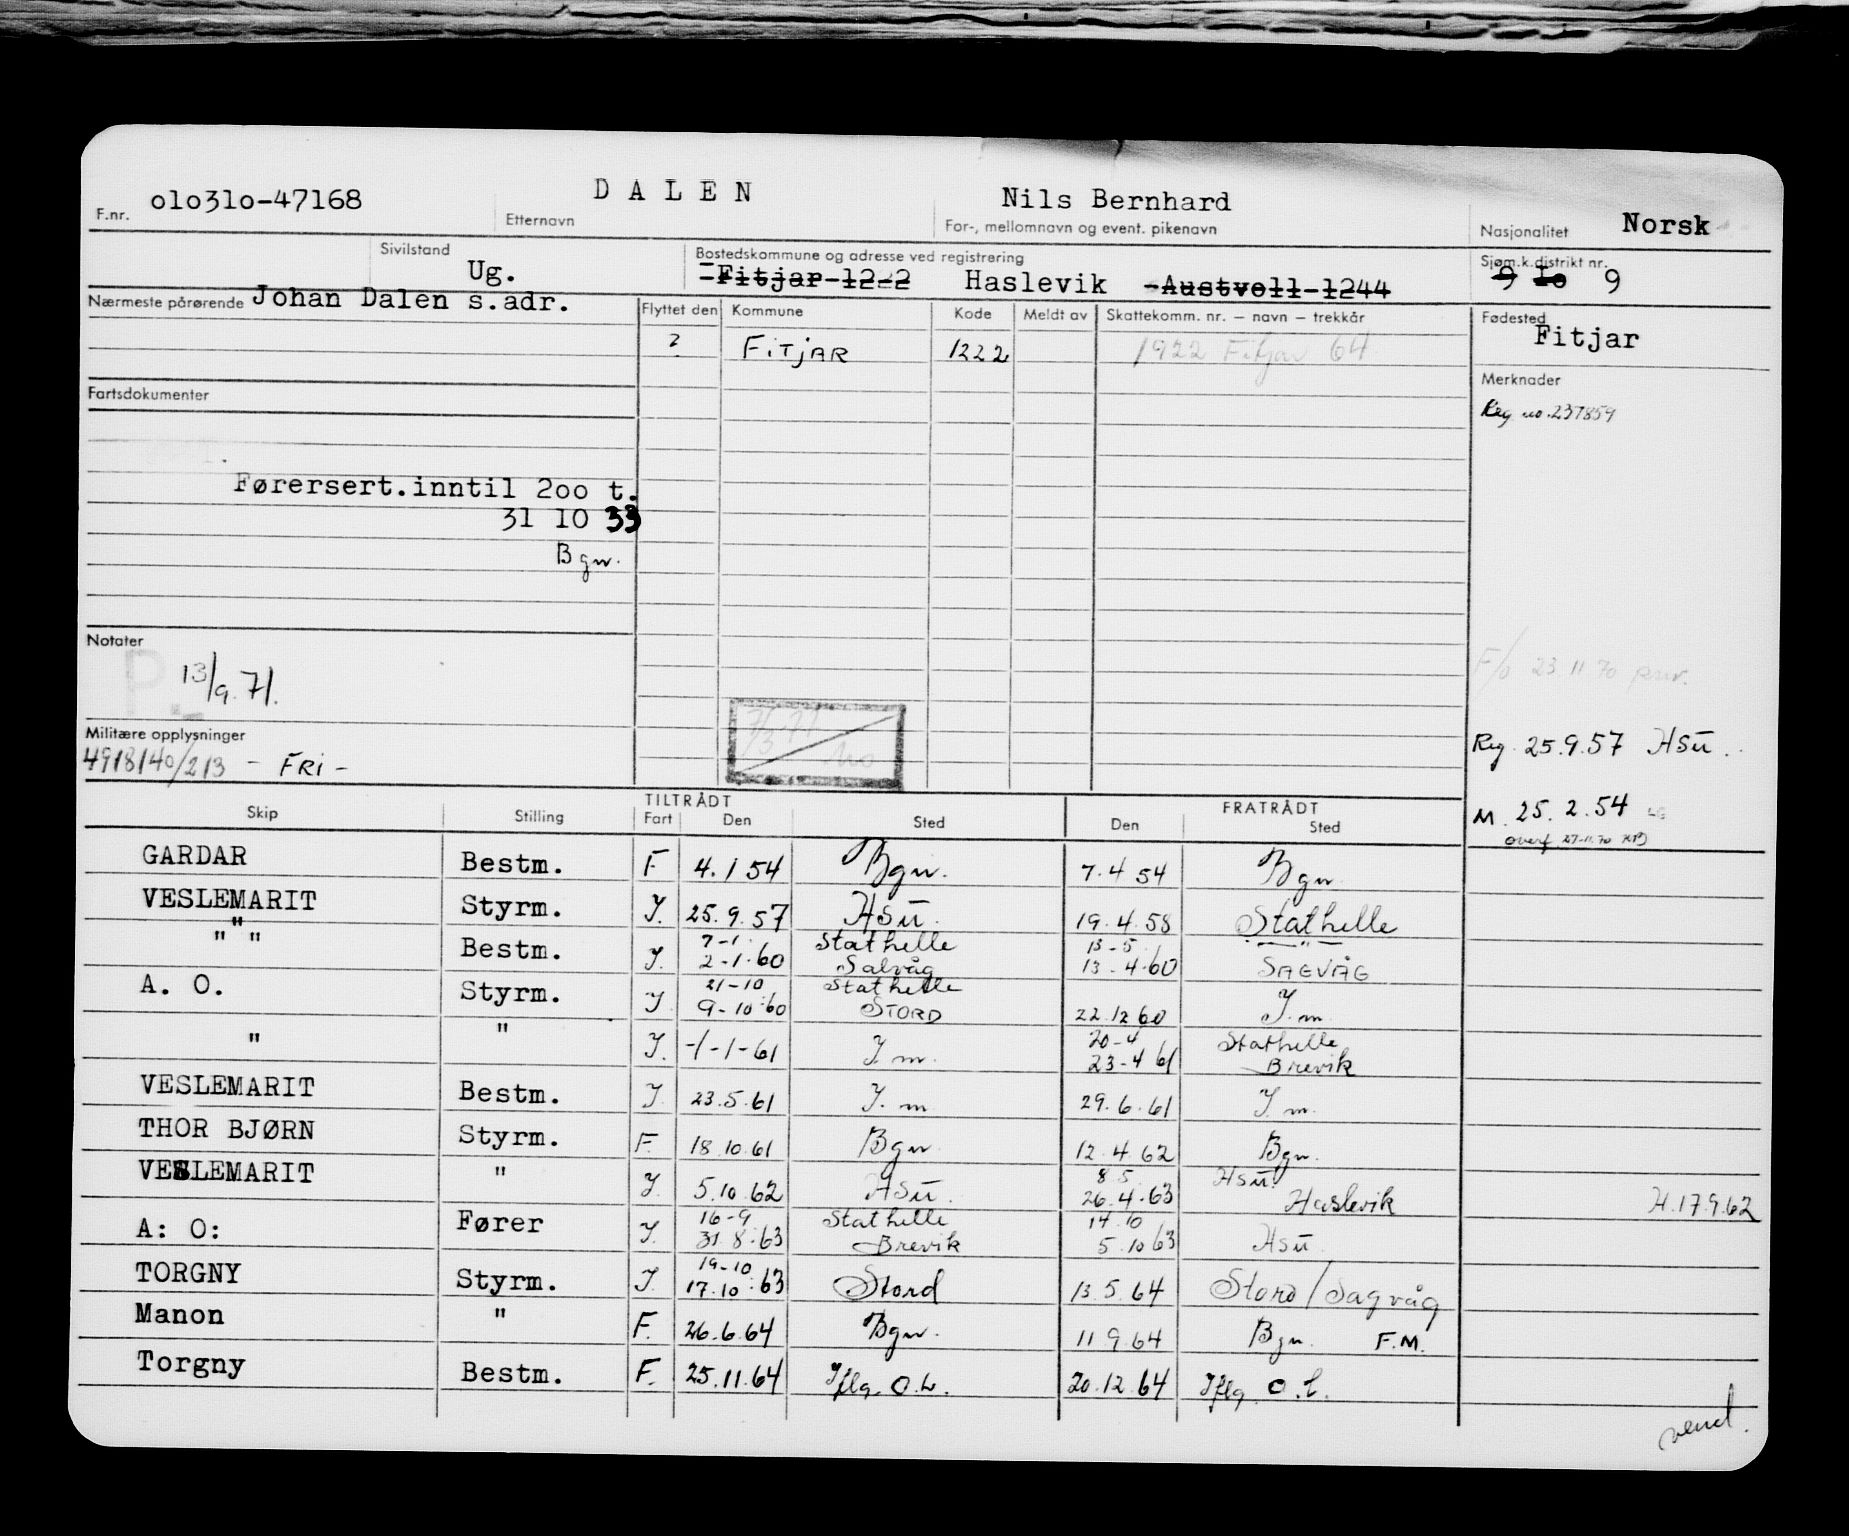 F.nr. 010310-47168 Etternavn DALEN For-, mellomnavn og event. pikenavn Nils Bernhard Nasjonalitet Norsk
Sivilstand Ug. Bostedskommune og adresse ved registrering -Fitjar-1222 Haslevik -Austvoll-1244 Sjøm.k.distrikt nr. 9 10 9
Nærmeste pårørende Johan Dalen s.adr. Flyttet den Kommune Kode Meldt av Skattekomm. nr. – navn – trekkår Fødested Fitjar
? FITJAR 1222 1922 Fitjar 64
Merknader
Fartsdokumenter
Reg no. 237859
Førersert.inntil 200 t.
31 10 33
Bgn.
Notater
13/9.71.
F/o 23 11 70
7/3 71
Militære opplysninger
4918/40/213 - FRI -
Reg. 25.9.57 Hsu.
M. 25.2.54
overf 27-11.70
TILTRÅDT FRATRÅDT
Skip Stilling Fart Den Sted Den Sted
GARDAR Bestm. F 4.1 54 Bgn. 7.4 54 Bgn
VESLEMARIT Styrm. J. 25.9.57 Hsu. 19.4.58 Stathelle
" " " Bestm. J. 7-1. 2-1-60 Stathelle Salvåg 13-5. 13-4-60 " SAGVÅG
A. O. Styrm. J 21-10 9-10-60 Stathelle STORD 22.12 60 J. m
" " J. -1-1-61 J m. 20-4 23-4 61 Stathelle Brevik
VESLEMARIT Bestm. J. 23.5.61 J. m 29.6.61 J m.
THOR BJØRN Styrm. F. 18.10.61 Bgn 12.4.62 Bgn.
VESLEMARIT " J. 5.10.62 Hsu. 8 5 26.4.63 Hsu. Haslevik H.17.9.62
A: O: Fører J. 16-9 31 8.63 Stathelle Brevik 14.10 5.10 63 Hsu
TORGNY Styrm. J. 19-10 17.10.63 Stord 13.5.64 Stord/Sagvåg
Manon " F. 26.6.64 Bgn. 11 9.64 Bgn. F.M.
Torgny Bestm. F. 25.11.64 Jflg. O.L. 20.12.64 Jflg O.L.
vend.